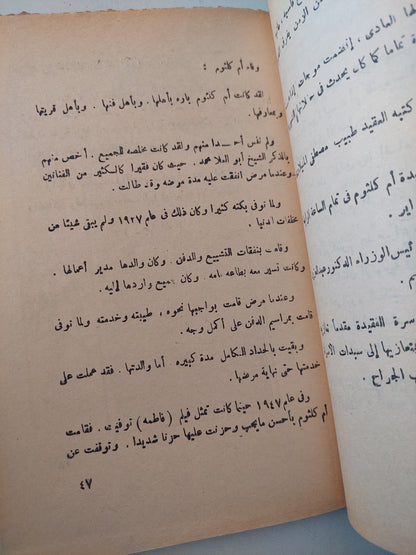 وفاء أم كلثوم :
لقد كانت أم كلثوم باره بأهلها . وبأهل فنها . وبأهل قريتها
وبمعارفها .
ولم تنس أحدا منهم ولقد كانت مخلصه للجميع . أخص منهم
بالذكر الشيخ أبو العلا محمد . حيث كان فقيرا كالكثير من الفنانين
وعندما مرض انفقت عليه مدة مرضه وقد طالت .
ولما توفى بكته كثيرا وكان ذلك فى عام ١٩٢٧ ولم يبق شيئا من
مخلفات الدنيا .
وقامت بنفقات التشييع والدفن . وكان والدها مدير أعمالها .
وكانت تسير معه بطاعه تامه . وكان جميع واردها إليه .
وعندما مرض قامت بواجبها نحوه ، طيبته وخدمته ولما توفى
قامت بمراسيم الدفن على أكمل وجه .
وبقيت بالحداد الكامل مدة كبيره . أما والدتها . فقد عملت على
خدمتها حتى نهاية مرضها .
وفى عام ١٩٤٧ حينما كانت تمثل فيلم ( فاطمه ) توفيت . فقامت
أم كلثوم بأحسن مايجب وحزنت عليها حزنا شديدا . وتوقفت عن
٤٧
ها المادى ، إنضمت موجات
ة تماما كما كان يحدث فى
كتبه العقيد طبيب مصطفى
سيدة أم كلثوم فى تمام الساعة
اير .
ئيس الوزراء الدكتور
م .
سرة الفقيدة مقدما
تعازيها إلى سيدات
ب الجراح .